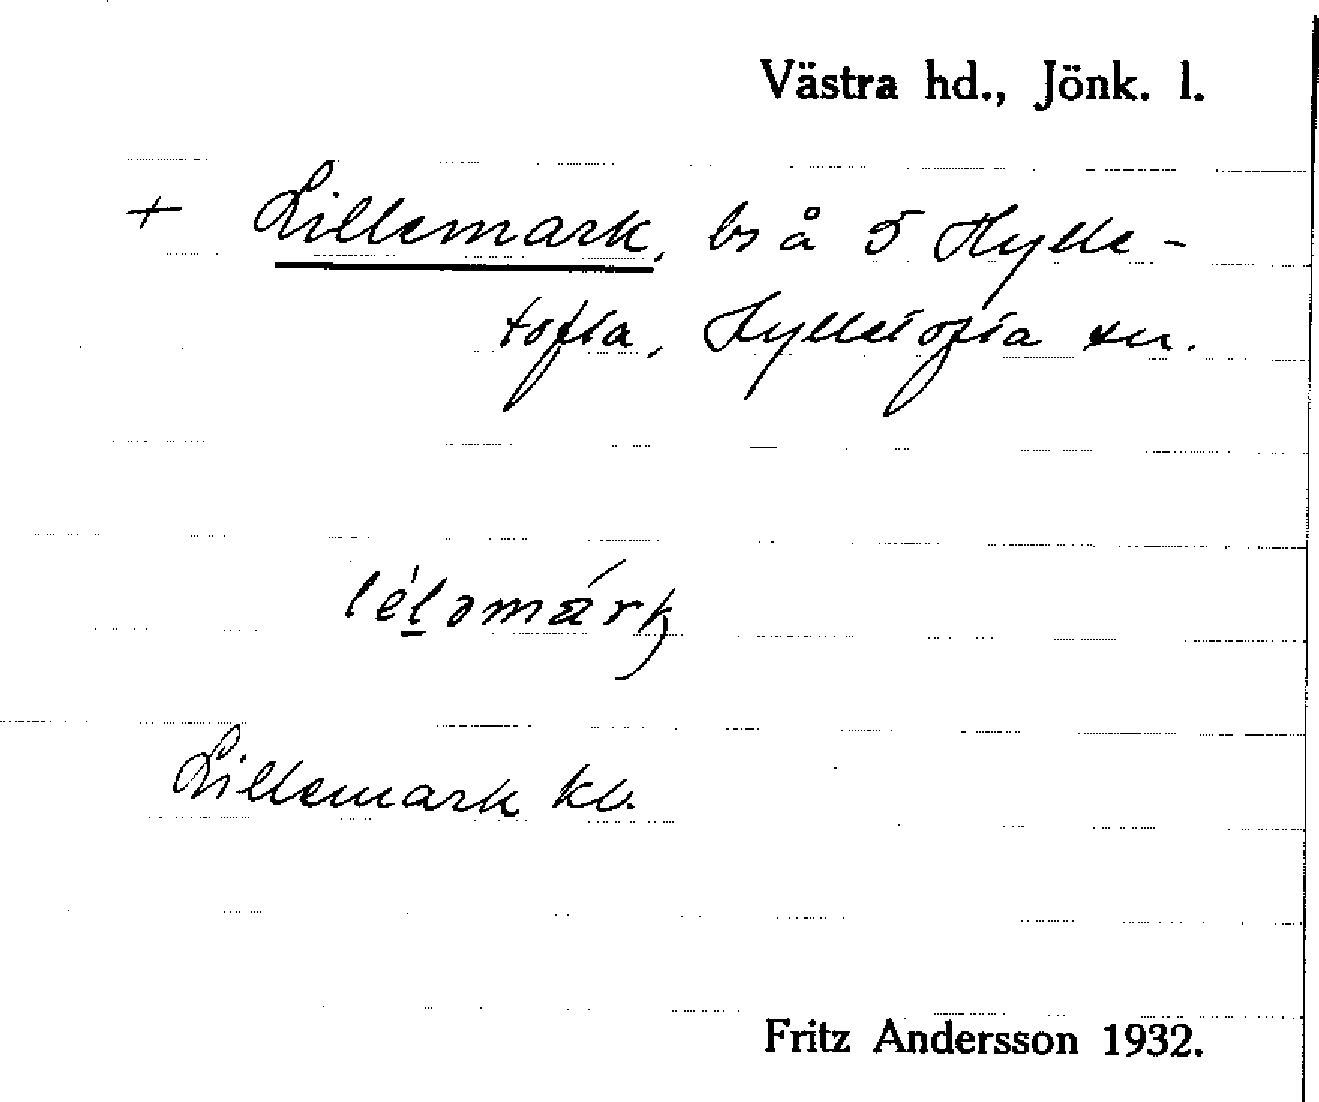 Västra hd., Jönk. l.
+ Lillemark, bs å 5 Hylle-
tofta, Hylletofta sn.
lélɘmárk
Lillemark kl.
Fritz Andersson 1932.